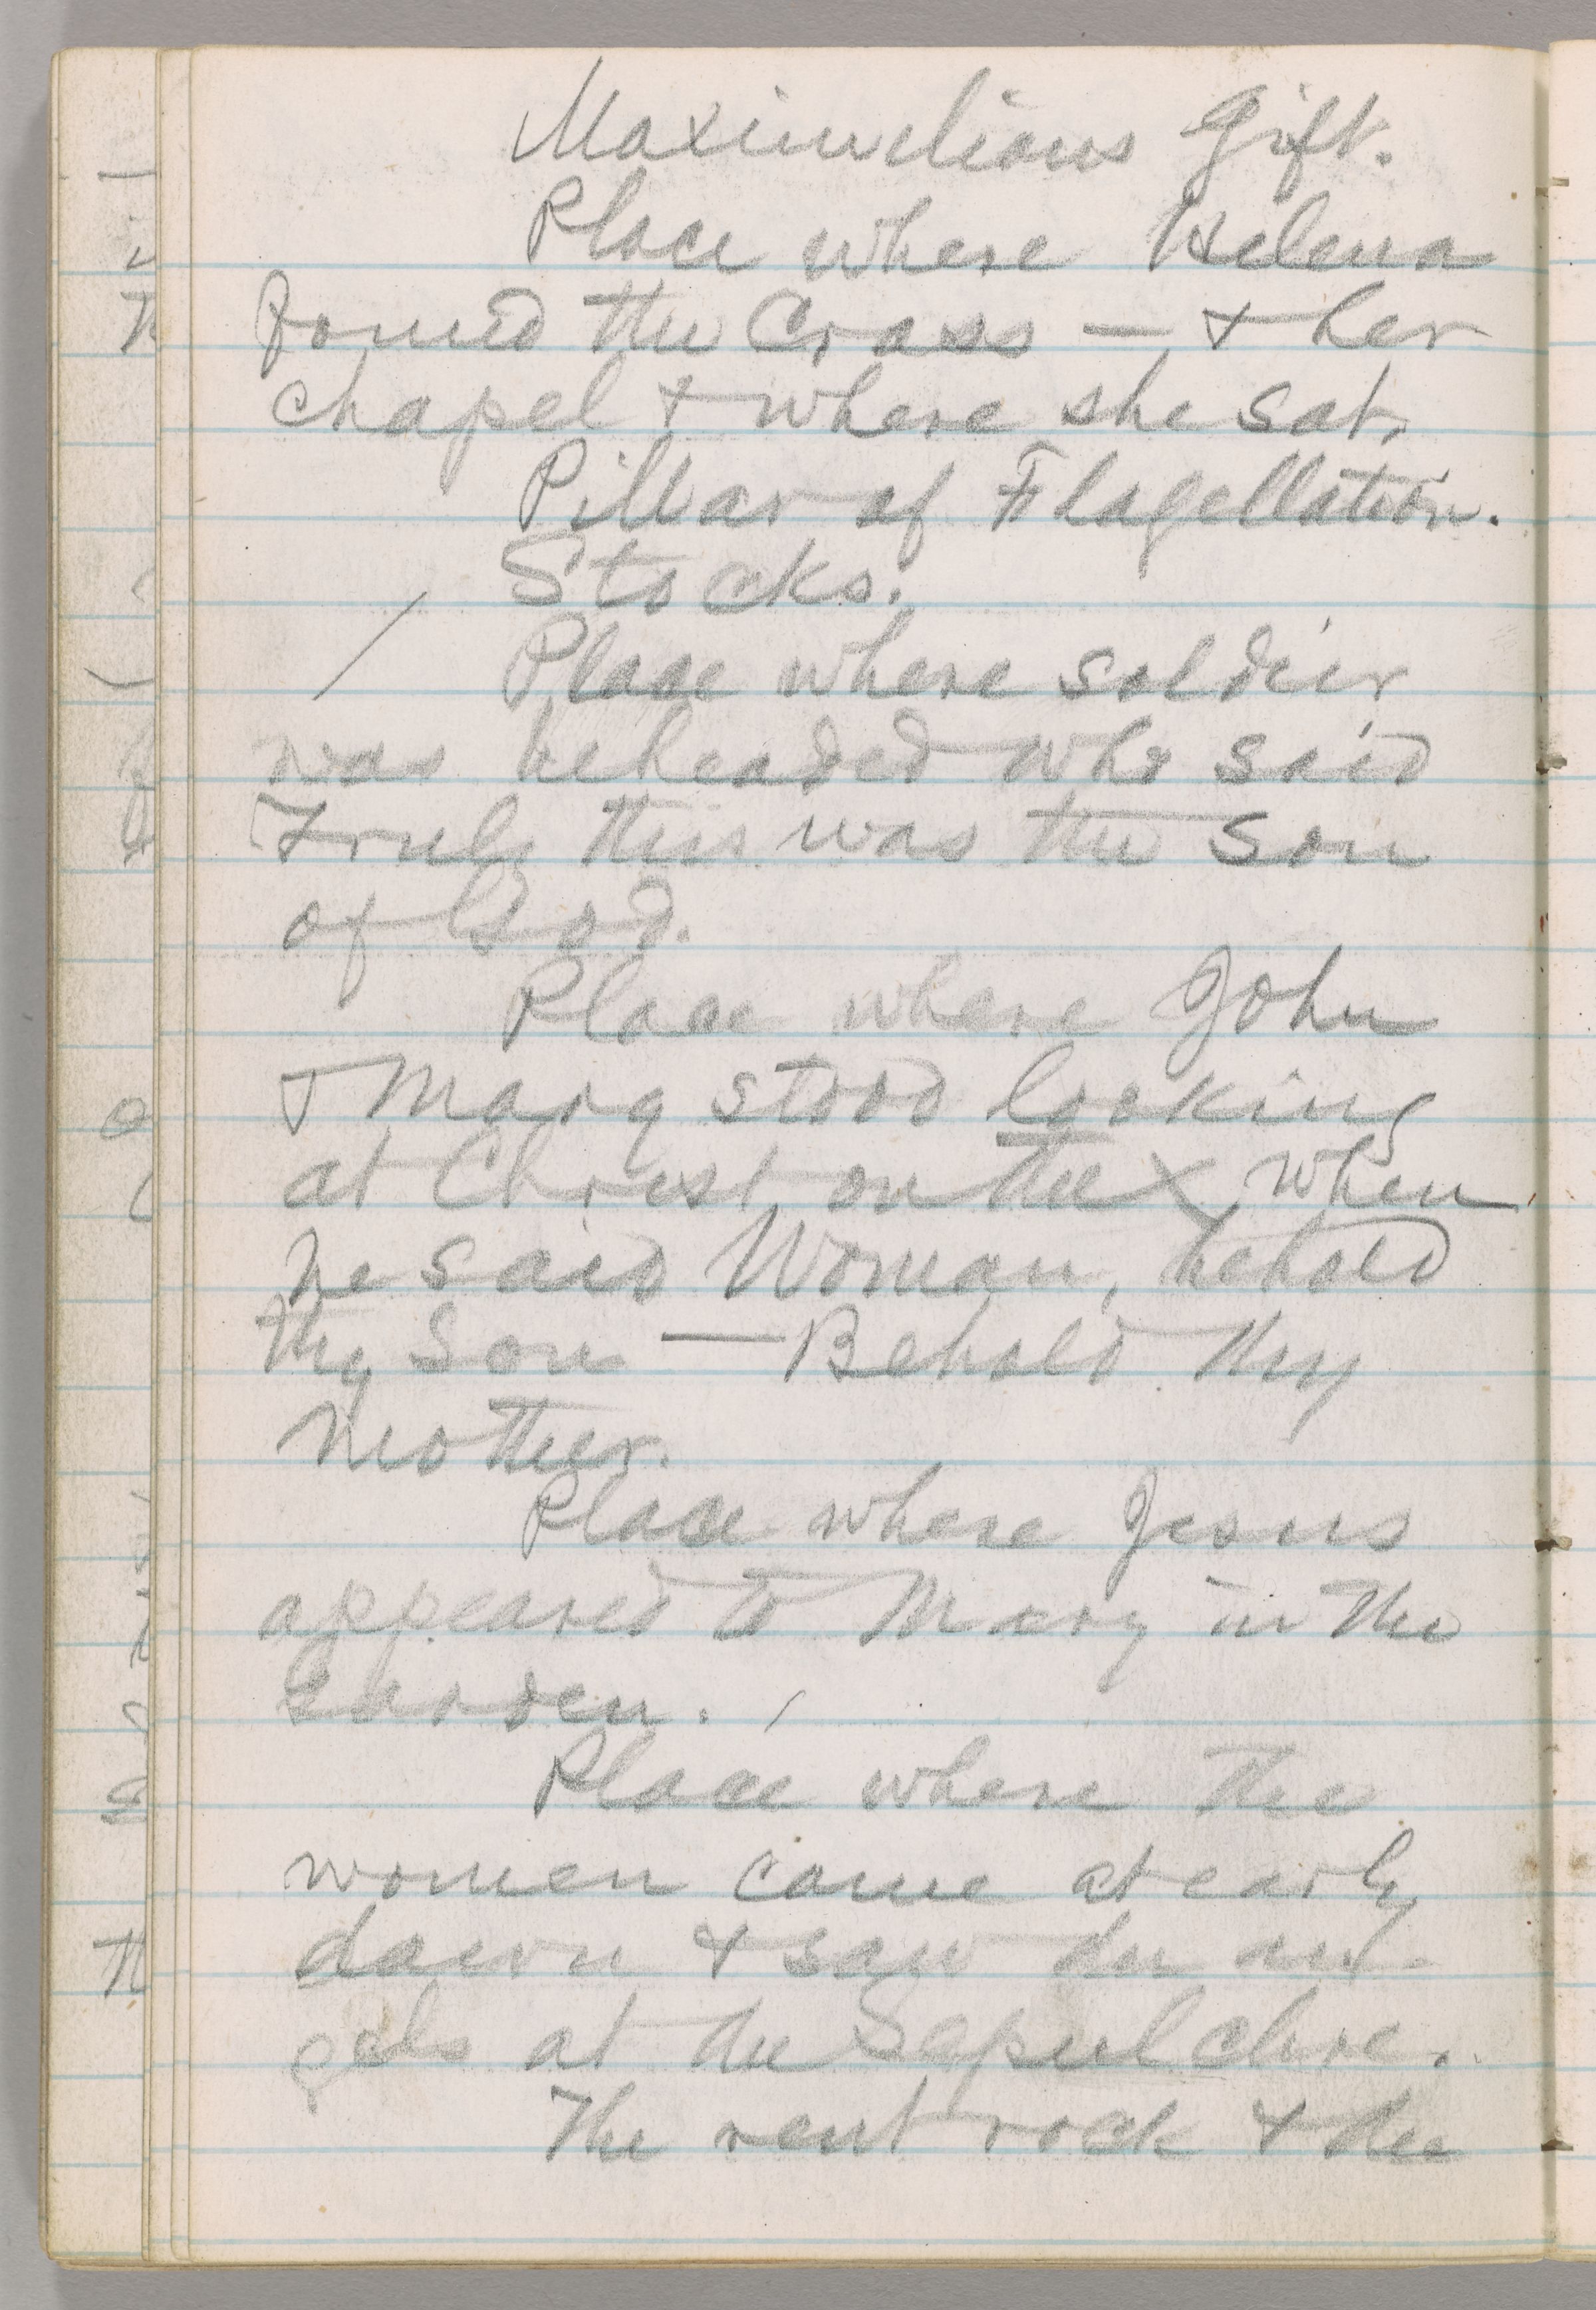 Maximilians Gift.
Place where Helena
found the Cross — & her
chapel & where she sat.
Pillar of Flagellation.
Stocks.
Place where soldier
was beheaded who said
Truly this was the Son
of God.
Place where John
& Mary stood looking
at Christ on the X when
he said Woman, behold
thy Son — Behold thy
Mother.
Place where Jesus
appeared to Mary in the
Garden.
Place where the
women came at early
dawn & saw the an-
gels at the Sepulchre.
The rent rock & the